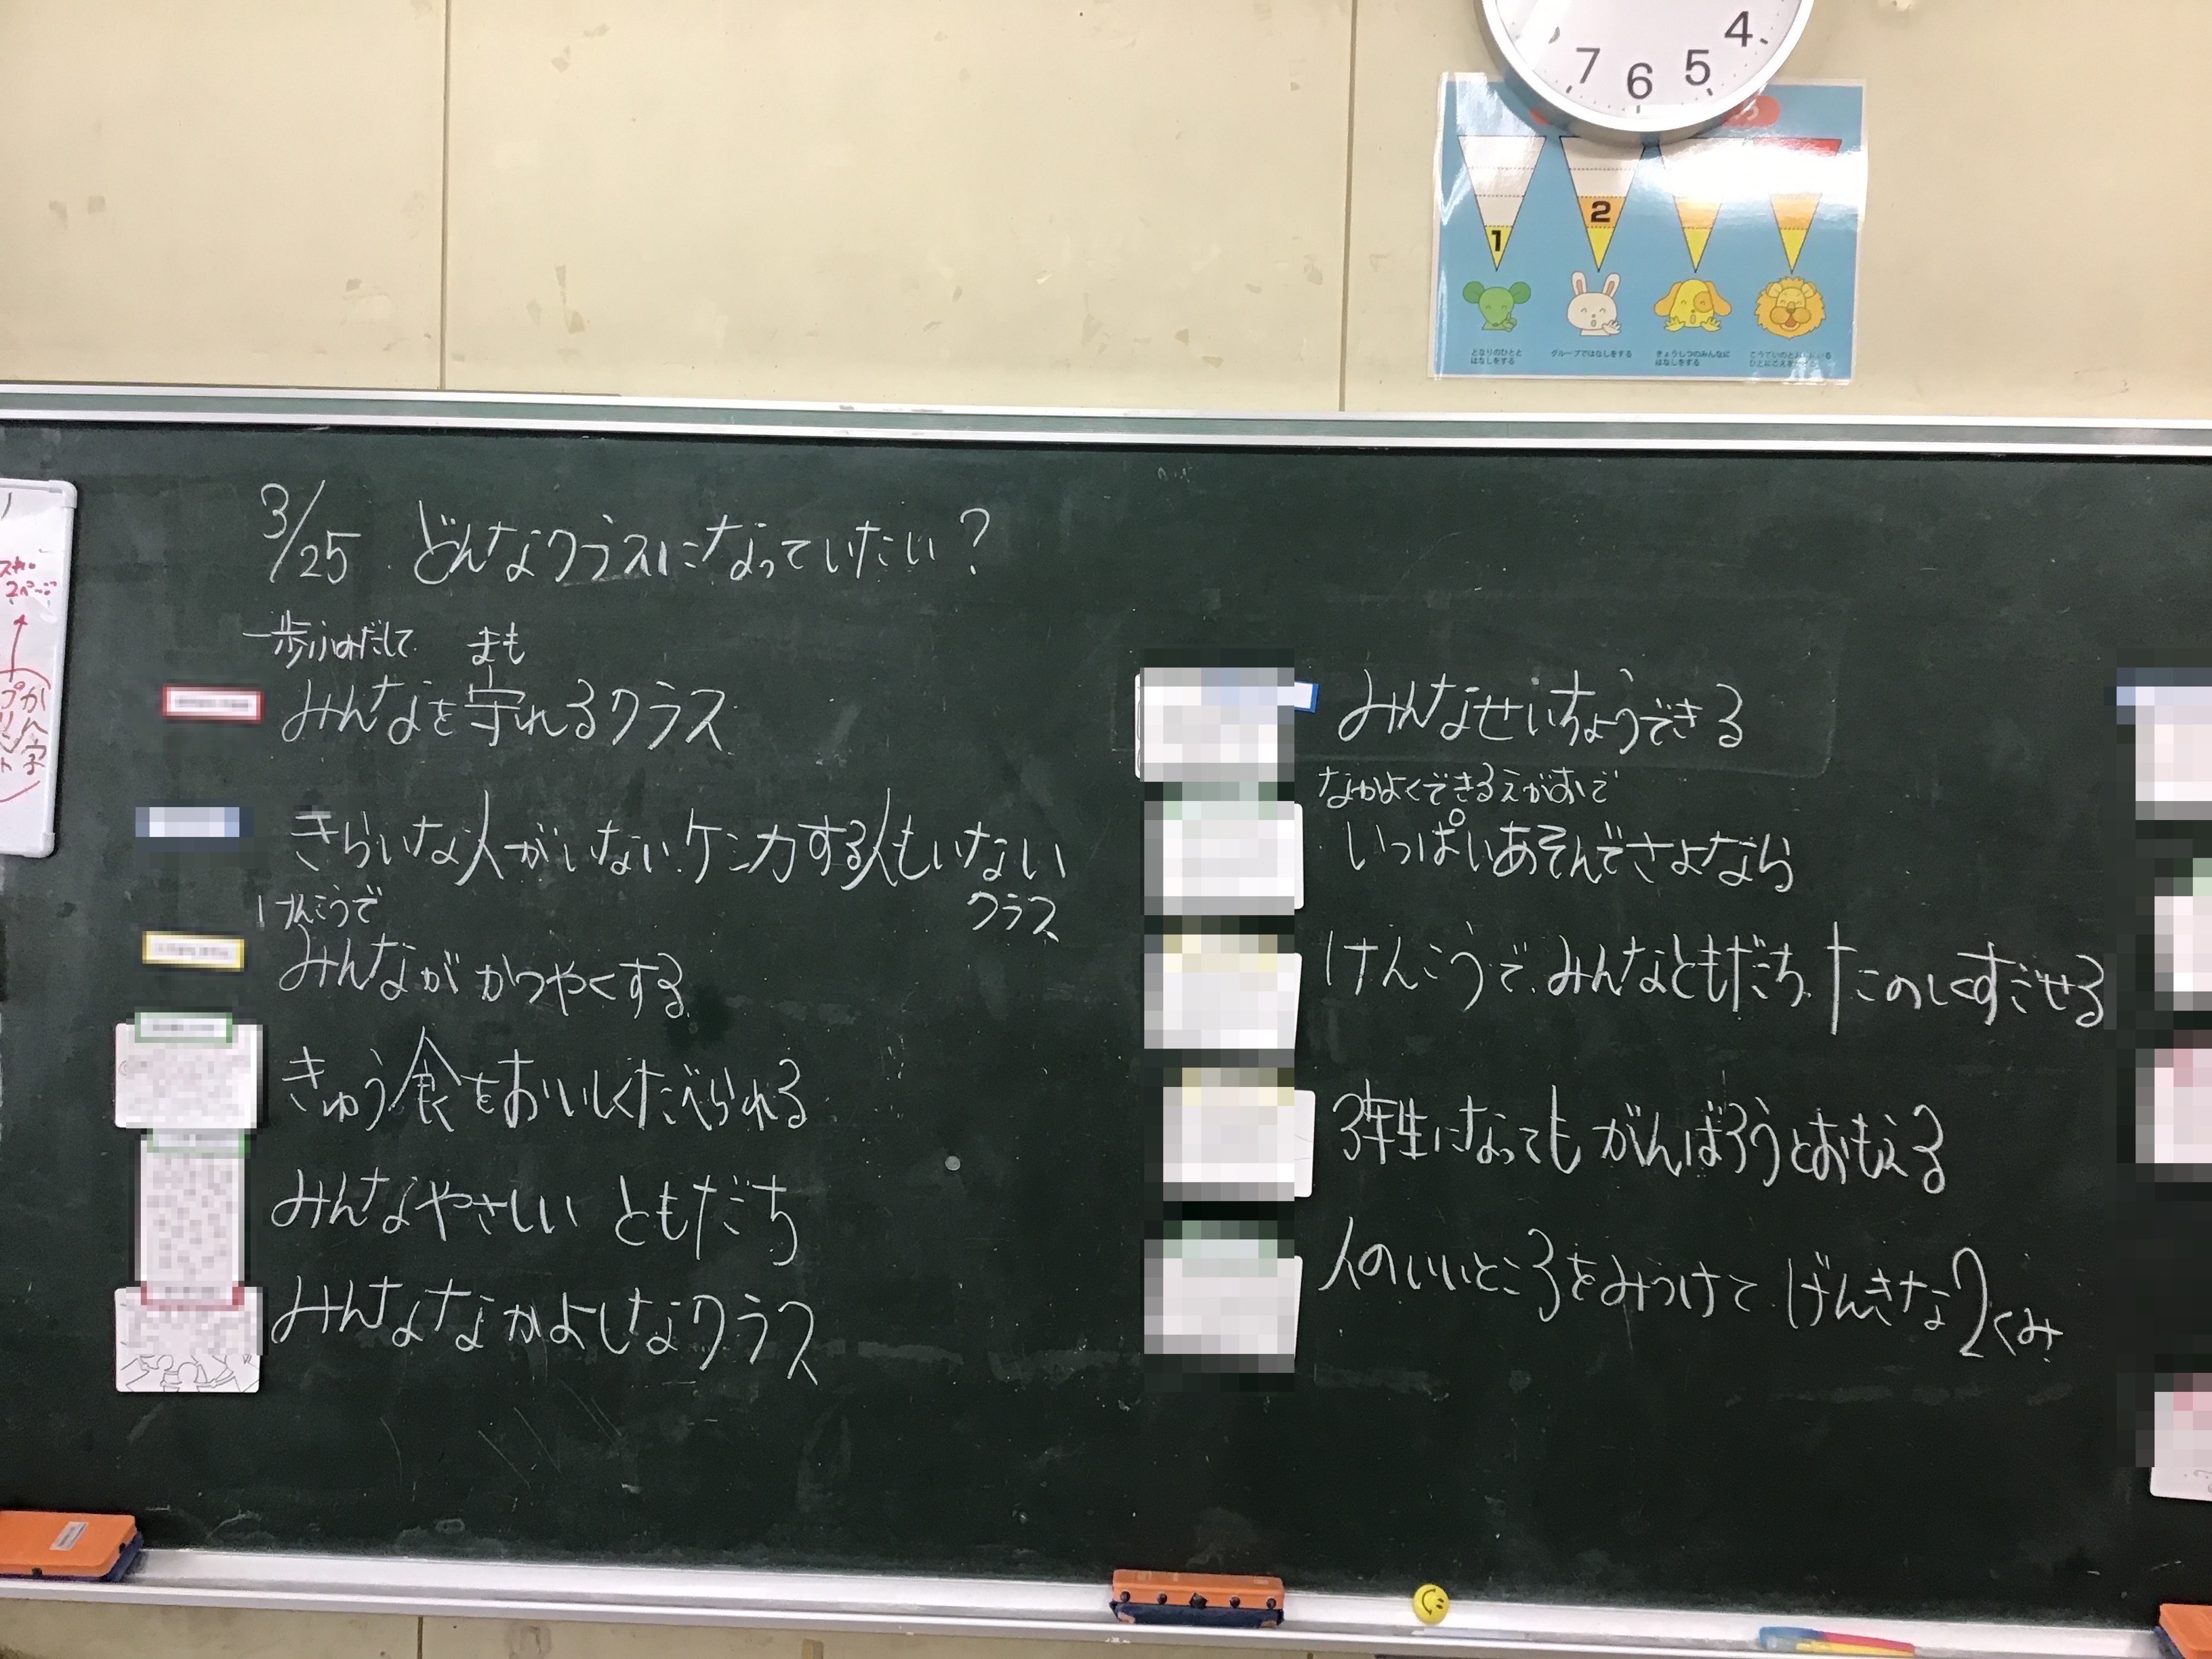 4
5
6
7
1
2
となりのひとと
はなしをする
グループではなしをする
きょうしつのみんなに
はなしをする
3/25 どんなクラスになっていたい?
一歩ふみだして
まも
みんなを守れるクラス
きらいな人がいない、ケンカする人もいない
クラス
けんこうで
みんなが かつやくする
きゅう食をおいしくたべられる
みんなやさしい ともだち
みんななかよしなクラス
みんなせいちょうできる
なかよくできるえがおで
いっぱいあそんでさよなら
けんこうで、みんなともだち、たのしくすごせる
3年生になっても がんばろうとおもえる
人のいいところをみつけて げんきな2くみ
2ページ
かん字
プリント